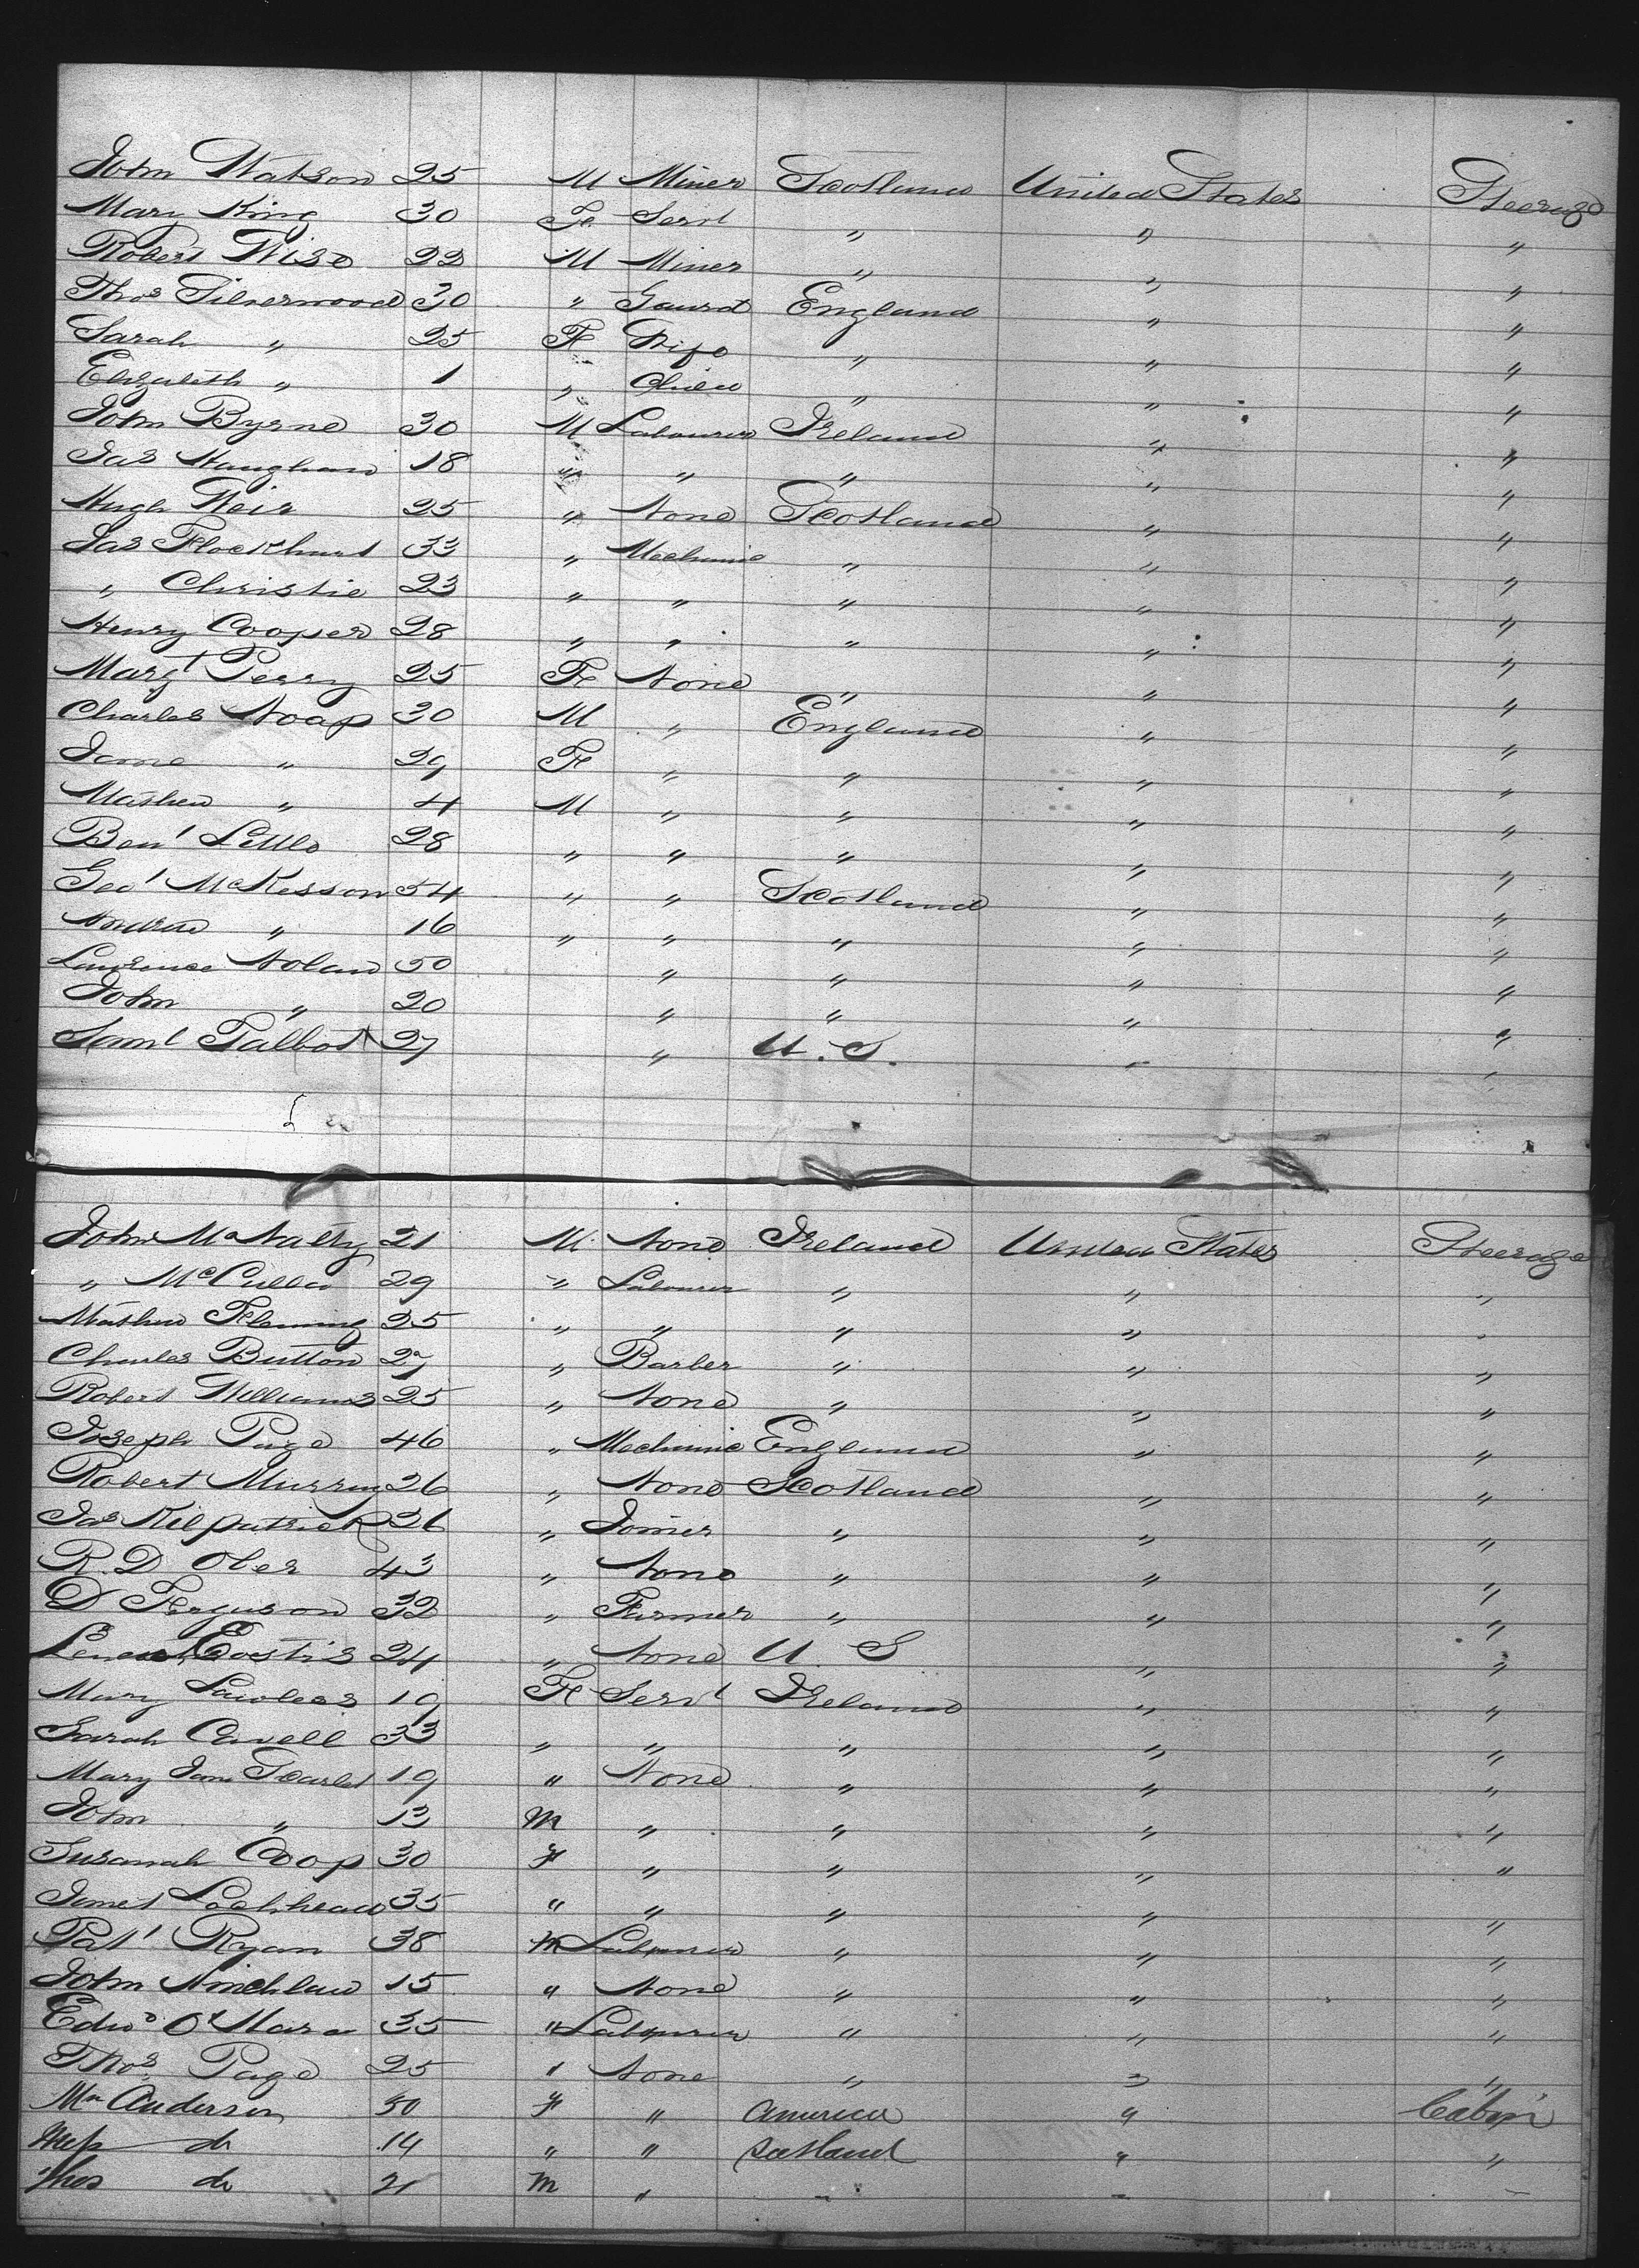 John Watson 25 M Miner Scotland United States Steerage
Mary King 30 Fe Servt " " "
Robert Wise 22 M Miner " " "
Thos Silverwood 30 " England " "
Sarah " 25 Fe Wife " " "
Elizabeth " 1 " Child " " "
John Byrne 30 M Labourer Ireland " "
Jas Haughan 18 " " " " "
Hugh Weir 25 " None Scotland " "
Jas Flockhart 33 " Mechanic " " "
" Christie 23 " " " " "
Henry Cooper 28 " " " " "
Margt Perry 25 Fe None " " "
Charles Noap 30 M " England " "
Jane " 29 Fe " " " "
Mathew " 4 M " " " "
Benj Little 28 " " " " "
Geo McKesson 54 " " Scotland " "
Andrew " 16 " " " " "
Lawrence Nolan 50 " " " "
John " 20 " " " "
Saml Talbot 27 " U.S. " "
John McNalty 21 M None Ireland United States Steerage
" McCullo 29 " Labourer " " "
Mathew Fleming 25 " " " " "
Charles Button 27 " Barber " " "
Robert Williams 25 " None " " "
Joseph Page 46 " Mechanic England " "
Robert Murray 26 " None Scotland " "
Jas Kilpatrick 36 " Joiner " " "
R. D Ober 43 " None " " "
D Ferguson 32 " Farmer " " "
Eostis 24 " None U. S " "
Mary Lawless 19 Fe Servt Ireland " "
Sarah Cavell 33 " " " " "
Mary Jane Scarlet 19 " None " " "
John " 13 M " " " "
Susanah Coop 30 F " " " "
Janet Lochhead 35 " " " " "
Pat Ryan 38 M Labourer " " "
John Hinchlaw 15 " None " " "
Edwd O'Mara 35 " Labourer " " "
Thos Page 25 " None " " "
Mrs Anderson 50 F " America " Cabin
Miss do 14 " " Scotland " "
Thos do 21 M " " " "